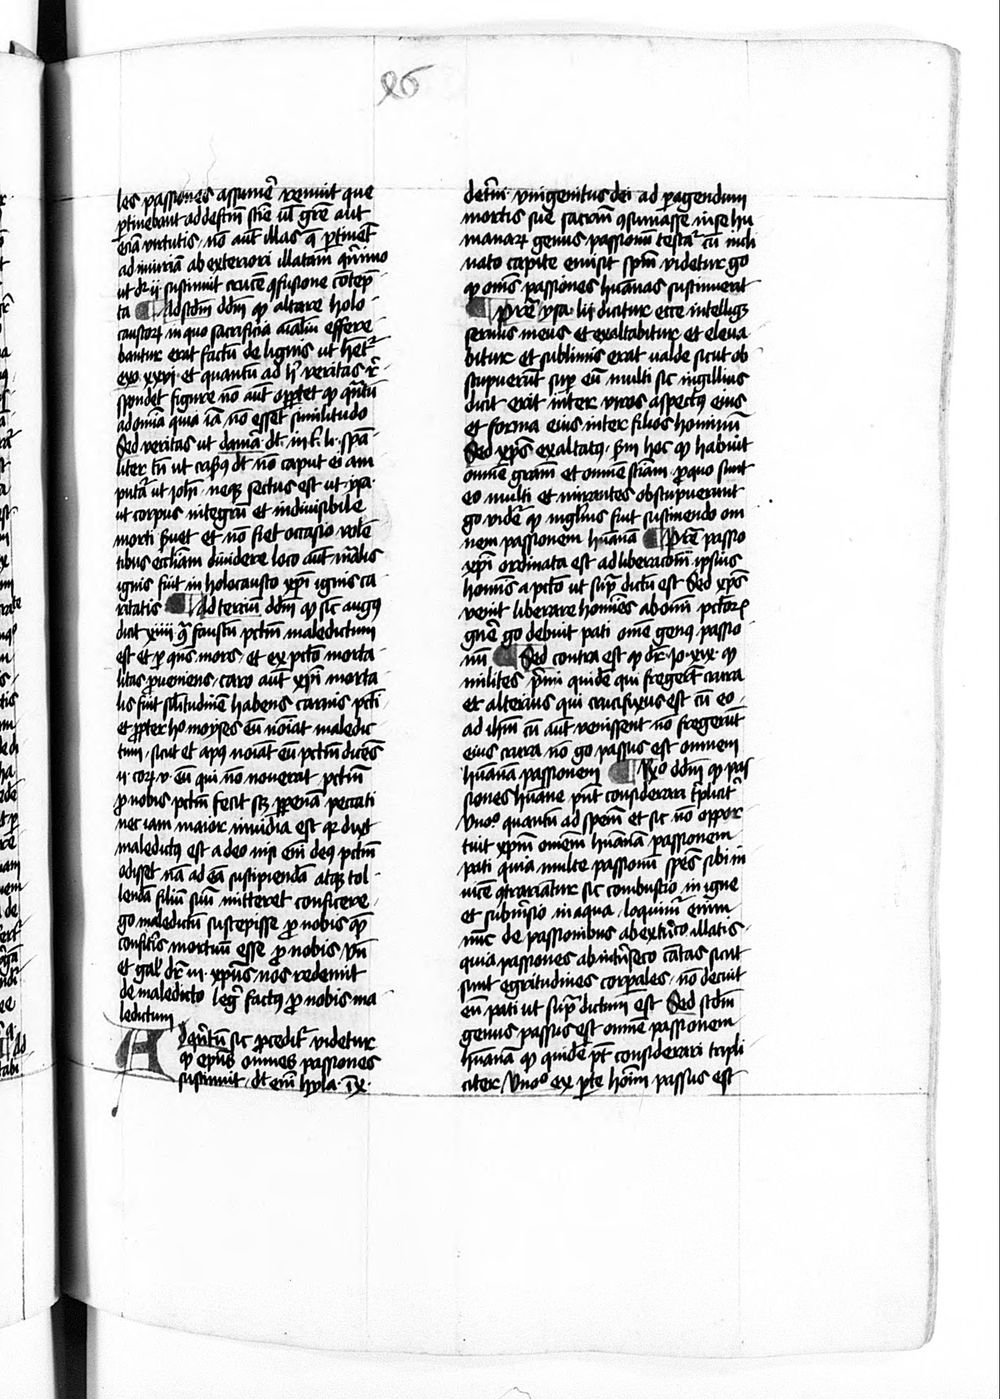 26
les passiones assumer̄ venuit que
ꝑtinebant ad defm̄ sciē ul̄ grē aut
eciā virtutis · nō aūt illas q̄ ꝑtinēt
ad iniuriā ab exteriori illatam qn̄immo
ut dr̄ ii sustinuit crucē ꝯfusione cōtēp
ta ¶ Ad scdm̄ ddm̄ ꝙ altare holo
caustoꝝ in quo sacrificia aīaliū offere
bantur erat factū de lignis ut hēt᷑
exo xxvi · et quantū ad h̄ veritas r̄
spondet figure nō aūt oꝑtet ꝙ qn̄tū
ad omīa quia iā nō esset similitudo
Sed veritas ut damā · dt · in l · spāli
liter tn̄ ut crisꝰ dt nō caput ei am
putat᷑ ut ioh̄i · neqꝫ sectus est ut ysa ·
ut corpus integrū et indiuisibile
morti ẜuet et nō fiet occasio volē
tibus ecc̄iam diuidere loco aūt mālis
ignis fuit in holocausto xp̄i ignis ca
ritatis ¶ Ad terciū ddm̄ ꝙ sic̄ augꝰ
dicit xiiii 9ͣ faustū pctm̄ maledictum
est et ꝑ qn̄s mors · et ex pctō morta
litas ꝓueniens · caro aūt xp̄i morta
lis fuit silitudinē habens carnis pcti
et ꝓpter hͦ moyses eū noīat maledic
tum · sicut et apꝰs noīat eū pctm̄ dicēs
ii · coꝝ v · eū qui nō nouerat pctm̄
ꝓ nobis pctm̄ fecit scꝫ ꝑ penā peccati
nec iam maior inuidia est qꝛ dixit
maledictꝰ est a deo nisi em̄ deꝰ pctm̄
odisset nā ad eā suscipiendā atqꝫ tol
lendā filiū suū mitteret confitere
go maledictū suscepisse ꝓ nobis quē
confiteris mortuū esse ꝓ nobis Vn̄
et gal dr̄ iii · xpūs nos redemit
de maledicto legꝭ factꝰ ꝓ nobis ma
ledictum
Ad qn̄tū sic ꝓcedit᷑ videtur
ꝙ xpūs omnes passiones
sustinuit · dt em̄ hyla · ix ·
de tri · vnigenitus dei ad ꝑagendum
mortis sue sacram̄ ꝯsumasse in se hu
manaꝝ genus passionū testat᷑ cū incli
nato capite emisit spm̄ videtur go
ꝙ om̄s passiones hūanas sustinuerit
¶ Pret̄ ysa · lii dicitur ecce intelligꝫ
seruus meus et exaltabitur et eleua
bitur et sublimis erit ualde sicut ob
stupuerūt suꝑ eū multi sic ingl̄lius
dicit erit inter viros aspectus eius
et forma eius inter filios hominū
Sed xpūs exaltatꝰ · ẜm hoc ꝙ habuit
omnē gram̄ et omnē sciam̄ ꝓ quo sunt
eo multi et mirantes obstupuerunt
go videt᷑ ꝙ inglius fuit sustinendo om
nem passionem hūanā ¶ Pret̄ passio
xp̄i ordinata est ad liberacōm ipsius
homīs a pctō ut supͣ dictū est Sed xpūs
venit liberare homīes ab omī pctōꝝ
gn̄e go debuit pati omē genꝰ passio
nū ¶ Sed contra est ꝙ dr̄ · Jo · xix · ꝙ
milites pͥmi quidē qui fregerūt crura
et alterius qui crucifixus est cū eo ·
ad ihm̄ cū aūt venissent nō fregerūt
eius crura nō go passus est omnem
hūanā passionem ¶ Rͦ ddm̄ ꝙ pas
siones hūane pn̄t considerari tͥplicit᷑
Vnoͦ quantū ad speēm et sic nō oppor
tuit xp̄m omēm hūanā passionem
pati quia multe passionū spēs sibi in
uicē ꝯtrariant᷑ sic combustio in igne
et submͥsio in aqua · loquimᷣ enim
nūc de passionibus ab extͥnco illatis ·
quia passiones ab intͥnseco cātas sicut
sunt egritudines corꝑales · nō decuit
eū pati ut supͣ dictum est Sed scdm̄
genus passus est omnē passionem
hūanā ꝙ quidē pt̄ considerari tripli
citer Vnoͦ ex ꝑte hoīm passus est